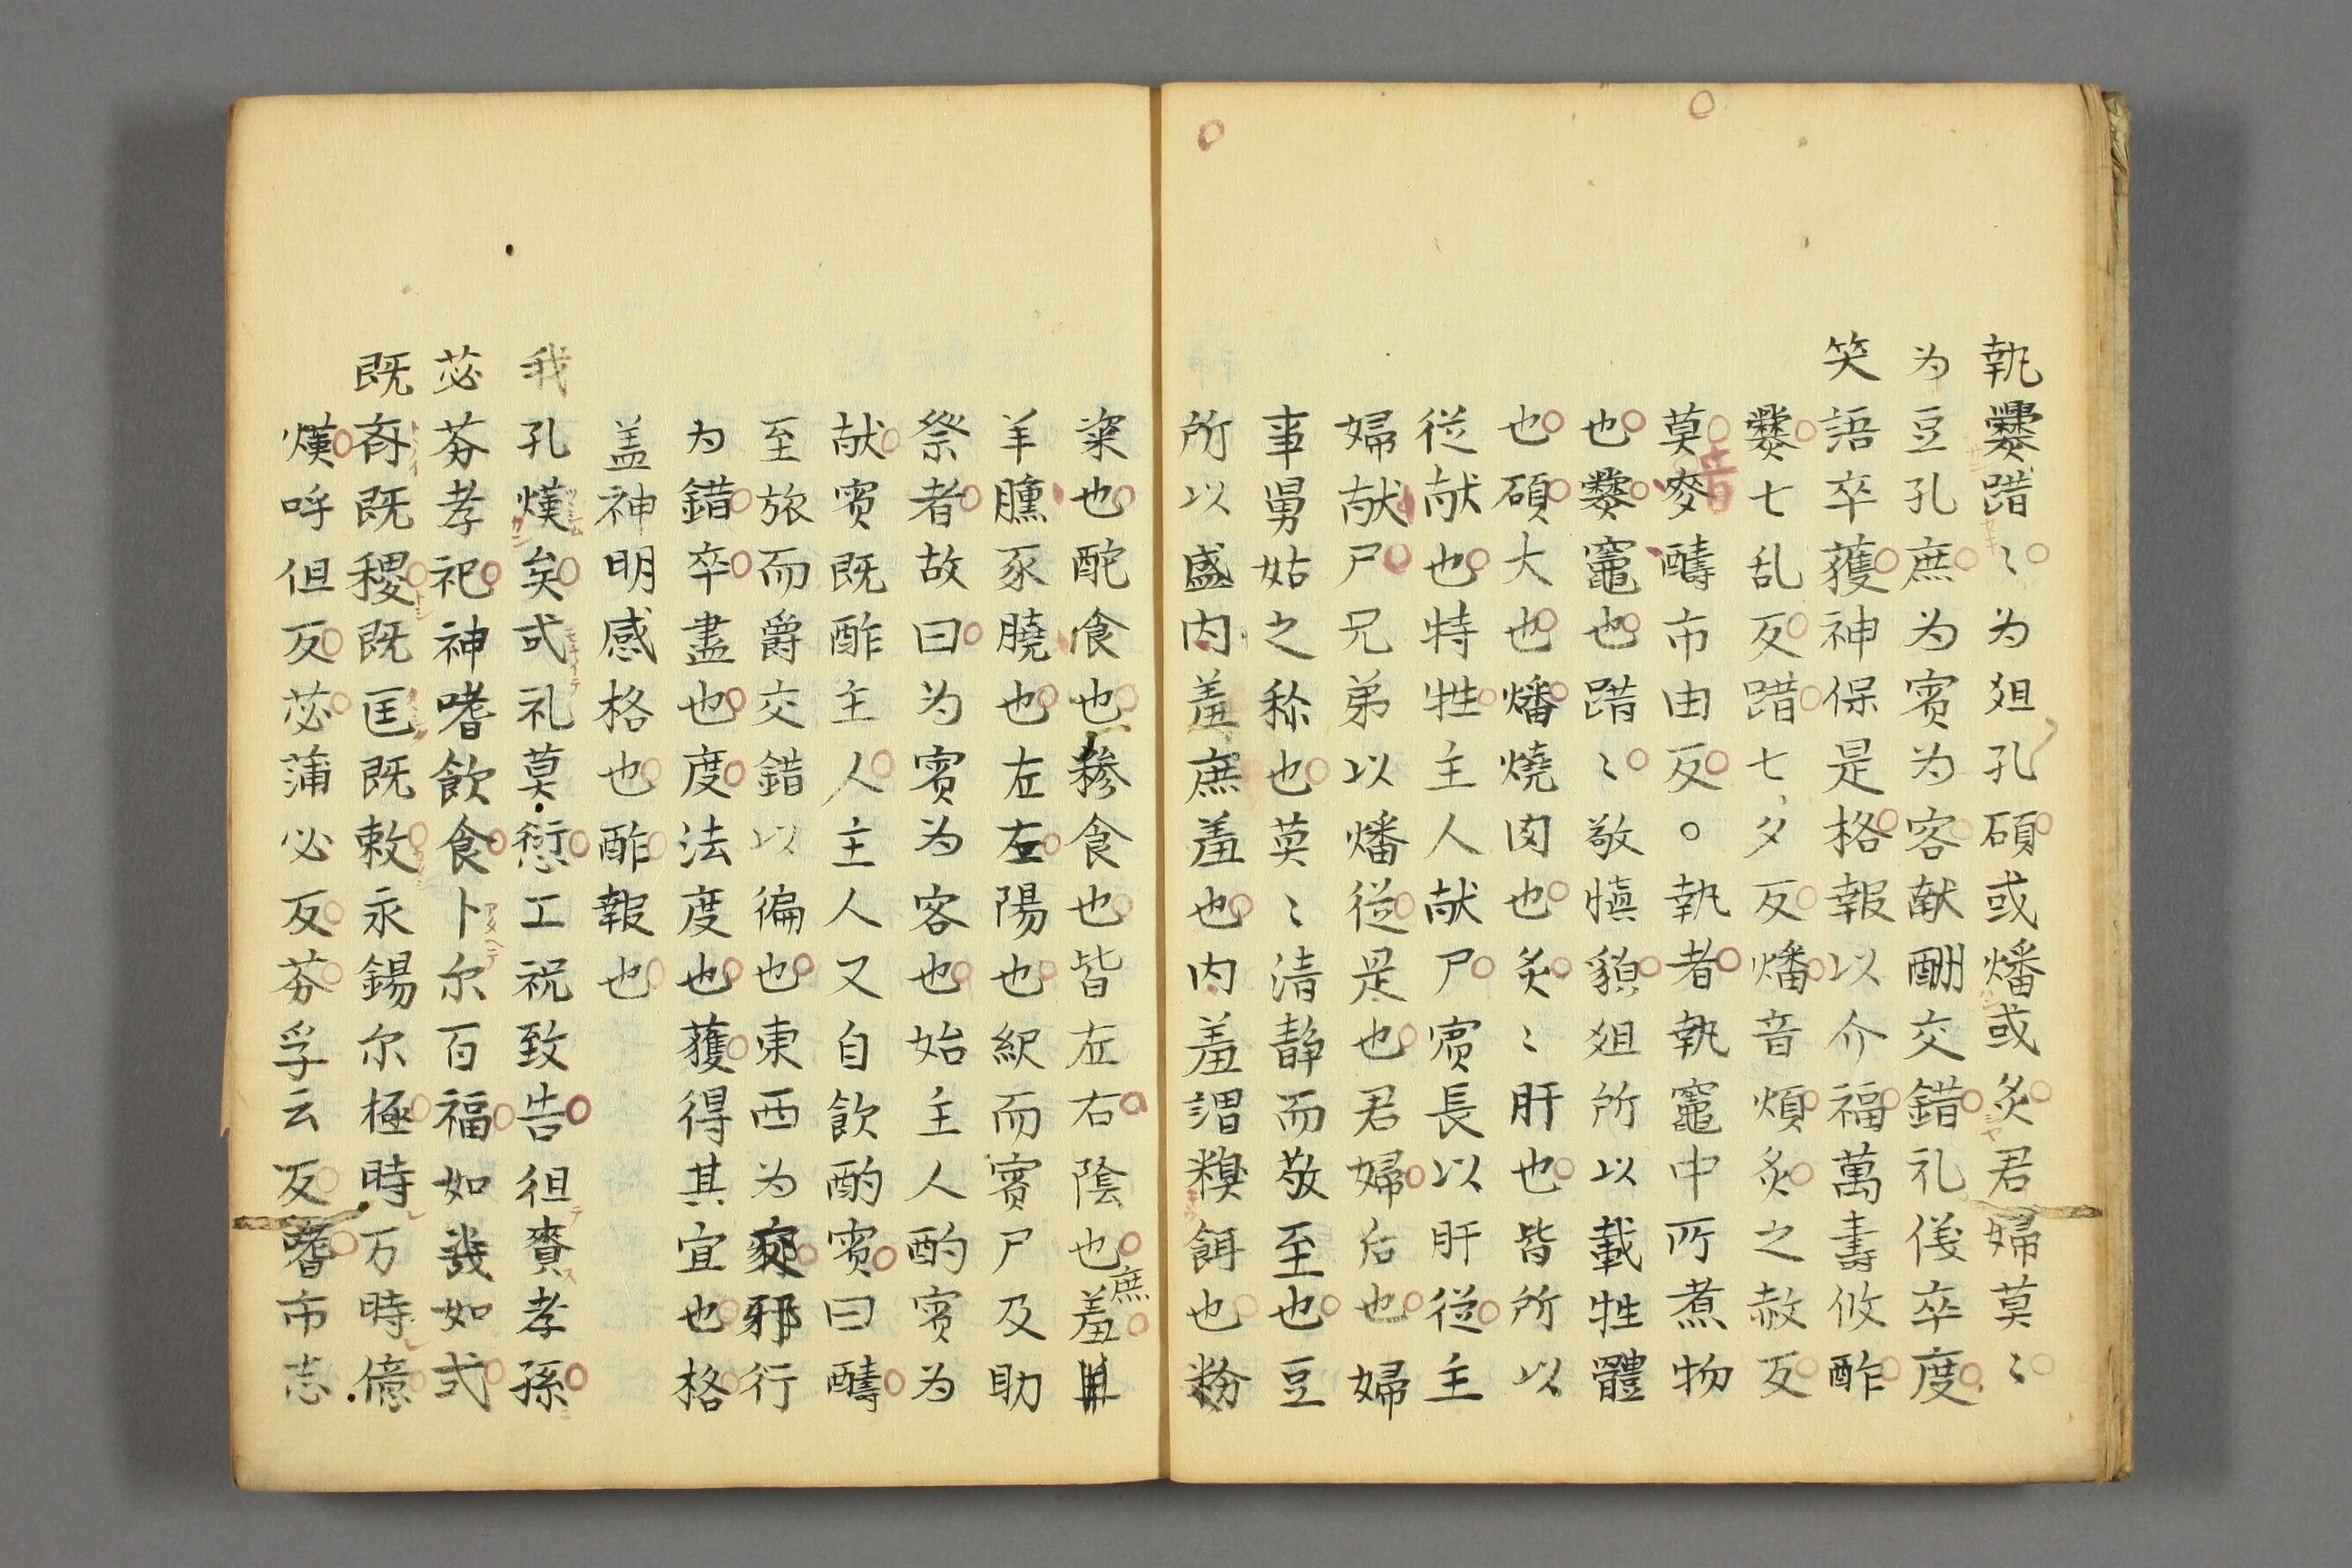 執爨踖〻为爼孔碩或燔或炙君婦莫〻
为豆孔庶为賓为客献酬交錯礼儀卒度
笑語卒獲神保是格報以介福萬壽攸酢
爨七乱反踖七夕反燔音煩炙之赦反
莫音麥醻市由反○執者執竈中所煮物
也爨竈也踖〻敬慎貌爼所以載牲體
也碩大也燔燒肉也炙〻肝也皆所以
従献也特牲主人献尸賓長以肝従主
婦献尸兄弟以燔従是也君婦后也婦
事舅姑之称也莫〻清静而敬至也豆
所以盛内羞庶羞也内羞謂糗餌也粉
粢也酏食也糝食也皆左右陰也庶羞
羊臐豕膮也左左陽也釈而賓尸及助
祭者故曰为賓为客也始主人酌賓为
献賓既酢主人主人又自飲酌賓曰醻
至旅而爵交錯以徧也東西为邪行
为錯卒盡也度法度也獲得其宜也格
盖神明感格也酢報也
我孔熯矣式礼莫愆工祝致告徂賚孝孫
苾芬孝祀神嗜飲食卜尔百福如幾如式
既斉既稷既匡既敕永錫尔極時万時億
熯呼但反苾蒲必反芬孚云反嗜市志